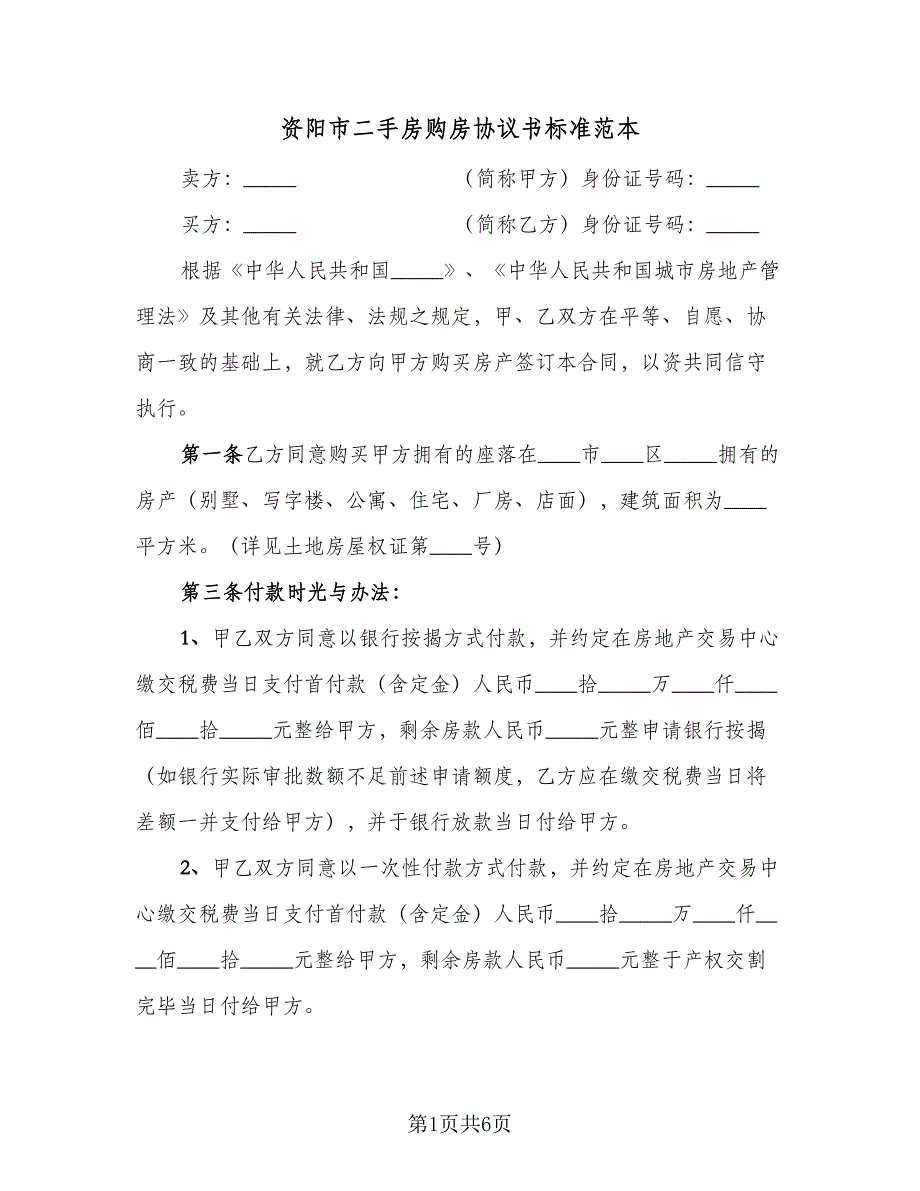 资阳市二手房购房协议书标准范本
卖方：_____ （简称甲方）身份证号码：_____
买方：_____ （简称乙方）身份证号码：_____
根据《中华人民共和国_____》、《中华人民共和国城市房地产管
理法》及其他有关法律、法规之规定，甲、乙双方在平等、自愿、协
商一致的基础上，就乙方向甲方购买房产签订本合同，以资共同信守
执行。
第一条乙方同意购买甲方拥有的座落在____市____区_____拥有的
房产（别墅、写字楼、公寓、住宅、厂房、店面），建筑面积为____
平方米。（详见土地房屋权证第____号）
第三条付款时光与办法：
1、甲乙双方同意以银行按揭方式付款，并约定在房地产交易中心
缴交税费当日支付首付款（含定金）人民币____拾_____万____仟____
佰____拾_____元整给甲方，剩余房款人民币_____元整申请银行按揭
（如银行实际审批数额不足前述申请额度，乙方应在缴交税费当日将
差额一并支付给甲方），并于银行放款当日付给甲方。
2、甲乙双方同意以一次性付款方式付款，并约定在房地产交易中
心缴交税费当日支付首付款（含定金）人民币____拾_____万____仟__
__佰____拾_____元整给甲方，剩余房款人民币_____元整于产权交割
完毕当日付给甲方。
第1页共6页